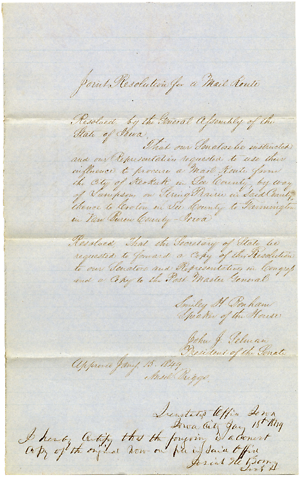 Joint Resolution for a Mail Route
Resolved by the General Assembly of the
State of Iowa
That our Senators be instructed
and our Representatives requested to use their
influence to procure a Mail Route from
the City of Keokuk in Lee County, by way
of
in Lee County to Farmington
in Van Buren County Iowa
Resolved, That the Secretary of State be
requested to forward a copy of this Resolution
to our Senators and Representatives in Congress
and a copy to the Post Master General
Smiley H Bonham
Speaker of the House
John J. Selman
President of the Senate
Approved Jany 15 1849
Ansel Briggs
Iowa
Iowa City Jany 18th 1849
I hereby certify that the foregoing is a correct
copy of the original now on file in said office
Josiah H Bonney